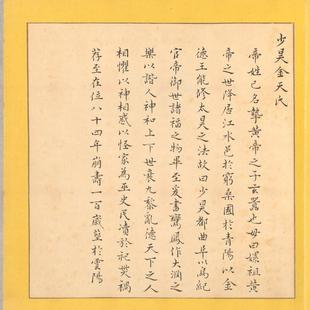 少昊金天氏
帝姓己名摯黃帝之子玄囂也母曰嫘祖黃
帝之世降居江水邑於窮桑國於青陽以金
德王能修太昊之法故曰少昊都曲阜以鳥紀
官帝御世諸福之物畢至爰書鸞鳳作大淵之
樂以諧人神和上下世衰九黎亂德天下之人
相懼以神相惑以怪家為巫史民瀆於祀災禍
荐至在位八十四年崩壽一百歲塟於雲陽